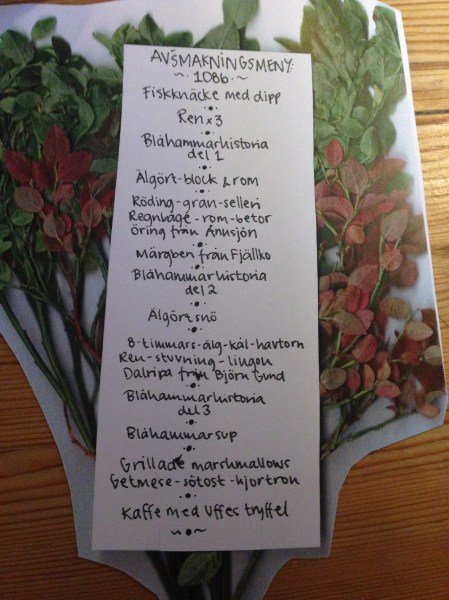 AVSMAKNINGSMENY:
~·1086·~
Fiskknäcke med dipp
Ren x3
Blåhammarhistoria
del 1
Älgört-block & rom
Röding-gran-selleri
Regnbåge-rom-betor
Öring från Ånnsjön
Märgben från Fjällko
Blåhammarhistoria
del 2
Älgörtsnö
8-timmars-älg-kål-havtorn
Ren-stuvning-lingon
Dalripa från Björn Gund
Blåhammarhistoria
del 3
Blåhammarsup
Grillade marshmallows
Getmese-sötost-hjortron
Kaffe med Uffes tryffel